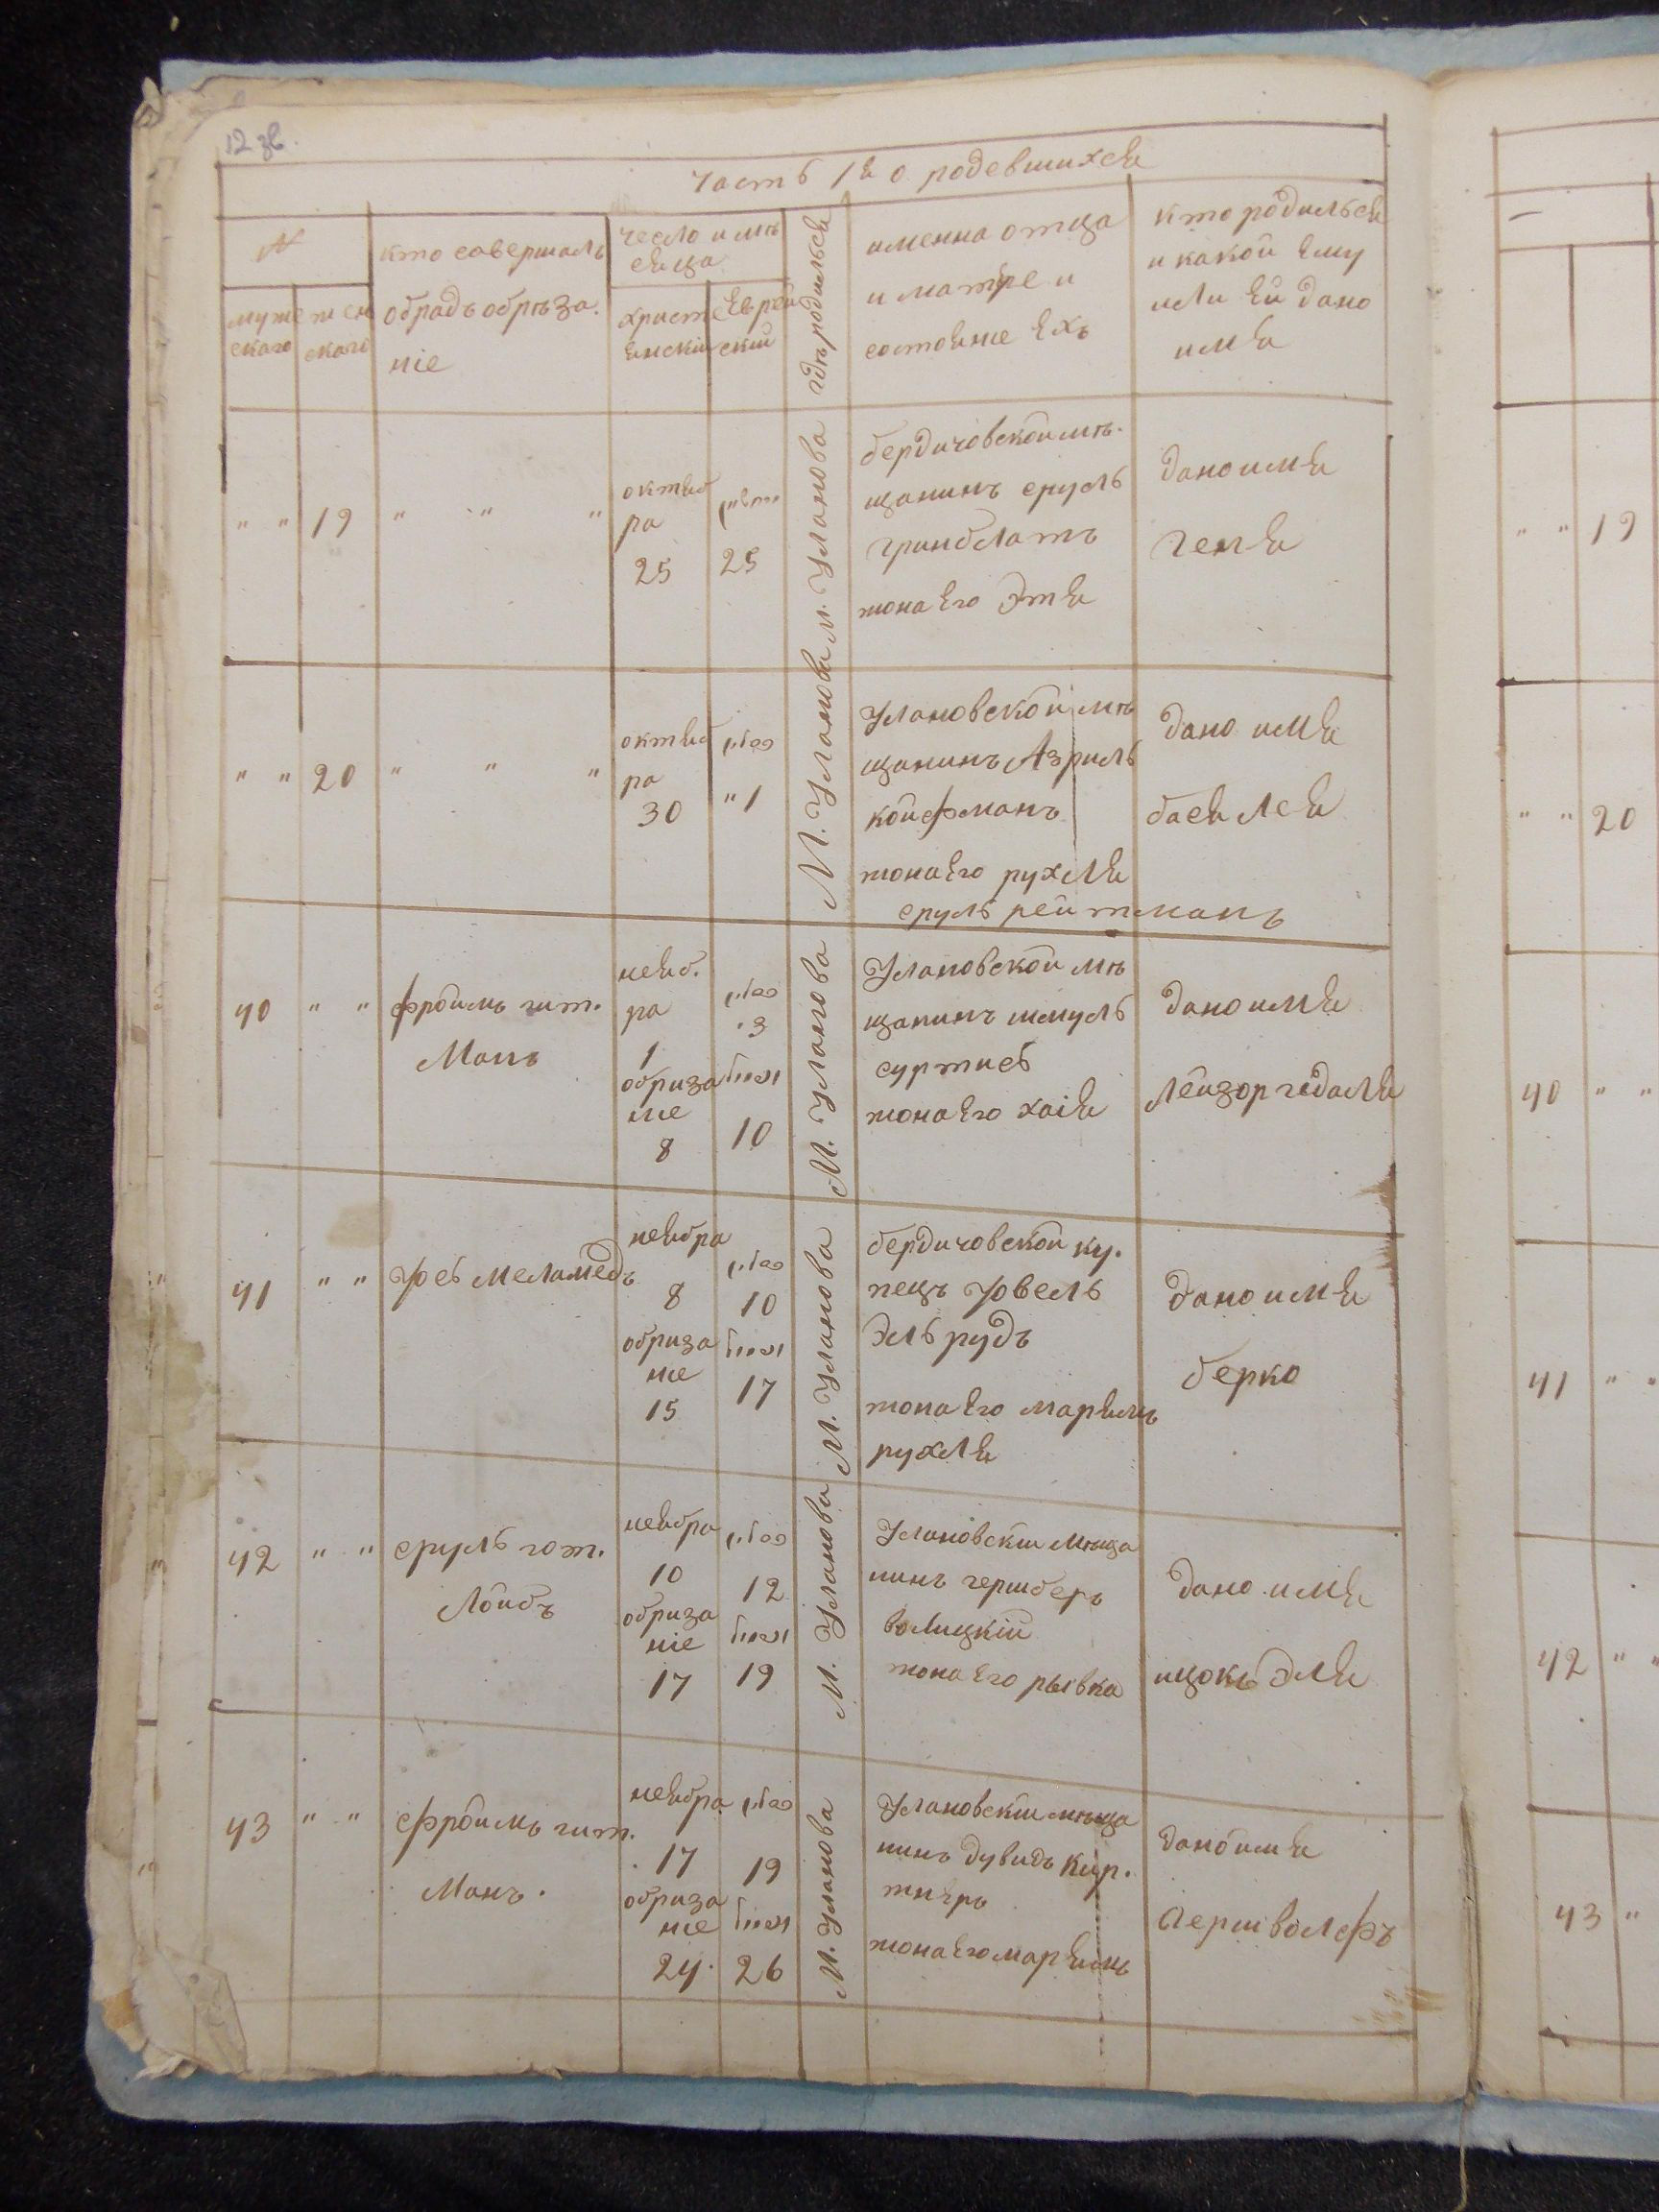 12 зв.
часть 1я о родевшихся
№
мужескаго
женскаго
кто совершалъ
обрадъ обрѣза.
ніе
чесло и мѣ
сяца
христ
янскій
Еврей
скій
гдѣ родилься
именна отца
и матре и
состояние Ехъ
кто родилься
и какой Ему
или Ей дано
имя
" " 19 " " "
октяб
ра
25
25
М. Уланова
бердичовской мѣ.
щанинъ сруль
гринблатъ
жона Его Этя
дано имя
геня
" " 20 " " "
октяб
ра
30
" 1
М. Уланова
Улановской мѣ
щанинъ Азриль
койфманъ
жона Его рухля
дано имя
бася лея
сруль рейтманъ
40 " "
фроимъ гит.
Манъ
неяб.
ра
1
обриза
ние
8
כסלו
3
מילה
10
М. Уланова
Улановской мѣ
щанинъ шмуль
суртисъ
жона Его хаія
дано имя
лейзор гедаля
41 " "
Уось меламедъ
неябра
8
обриза
ние
15
כסלו
10
מילה
17
М. Уланова
бердичовской ку.
пецъ Ювель
Эльрудъ
жона Его марямъ
рухля
дано имя
берко
42 " "
сруль гот.
Лоибъ
неябра
10
обриза
ніе
17
כסלו
12
מילה
19
М. Уланова
Улановскій мѣща
нинъ гершберъ
волицкій
жона Его рывка
дано имя
ицокъ Эля
43 " "
фроимъ гит.
Манъ.
неябра
17
обриза
ние
24
כסלו
19
מילה
26
М. Уланова
Улановскій мѣща
нинъ дувидъ
жона Его марямъ
дано имя
герш волфъ
" " 19
" " 20
40 " "
41 " "
42 " "
43 "